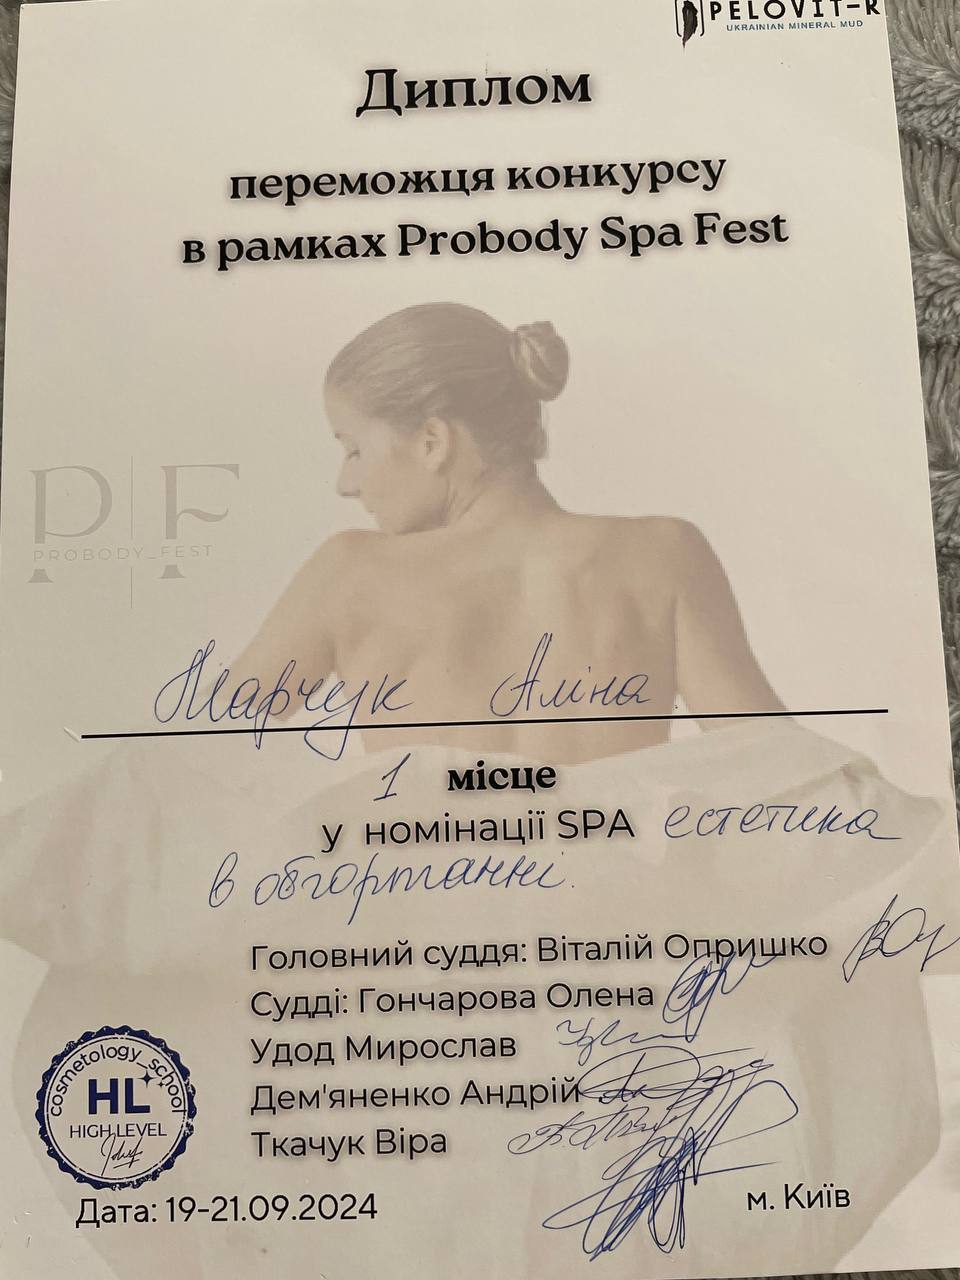 PELOVIT-R
UKRAINIAN MINERAL MUD
Диплом
переможця конкурсу
в рамках Probody Spa Fest
PF
PROBODY_FEST
Марчук Аліна
1 місце
у номінації SPA естетика
в обгортанні.
Головний суддя: Віталій Опришко
Судді: Гончарова Олена
Удод Мирослав
Дем'яненко Андрій
Ткачук Віра
cosmetology_school
HL
HIGH LEVEL
Дата: 19-21.09.2024
м. Київ